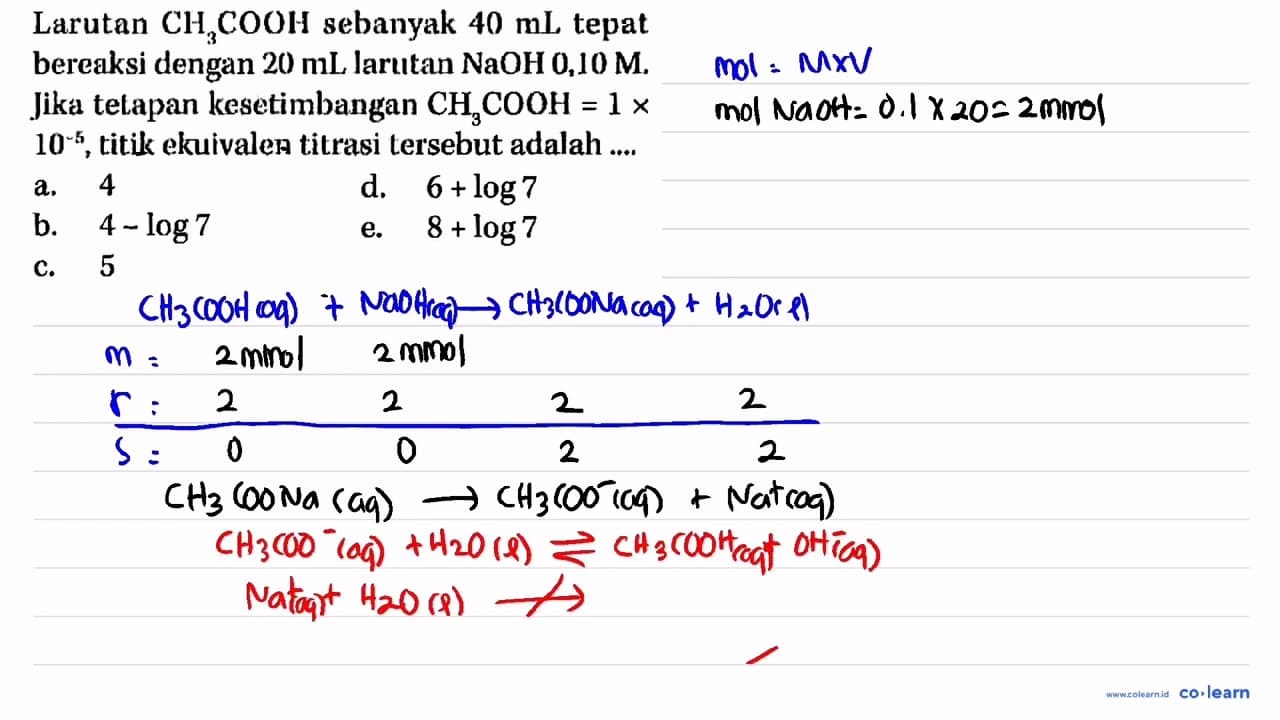 Larutan CH₃COOH sebanyak 40 mL tepat
bereaksi dengan 20 mL larutan NaOH 0,10 M.
Jika tetapan kesetimbangan CH₃COOH = 1 ×
10⁻⁵, titik ekuivalen titrasi tersebut adalah ....
a. 4
b. 4 – log 7
c. 5
d. 6 + log 7
e. 8 + log 7
mol = M×V
mol NaOH = 0.1 × 20 = 2 mmol
CH3COOH (aq) + NaOH(aq) → CH3COONa (aq) + H2O(l)
m = 2 mmol 2 mmol
r : 2 2 2 2
s = 0 0 2 2
CH3COONa (aq) → CH3COO⁻ (aq) + Na⁺(aq)
CH3COO⁻ (aq) + H2O (l) ⇌ CH3COOH(aq) + OH⁻(aq)
Na⁺(aq) + H2O (l) ↛
www.colearn.id co·learn